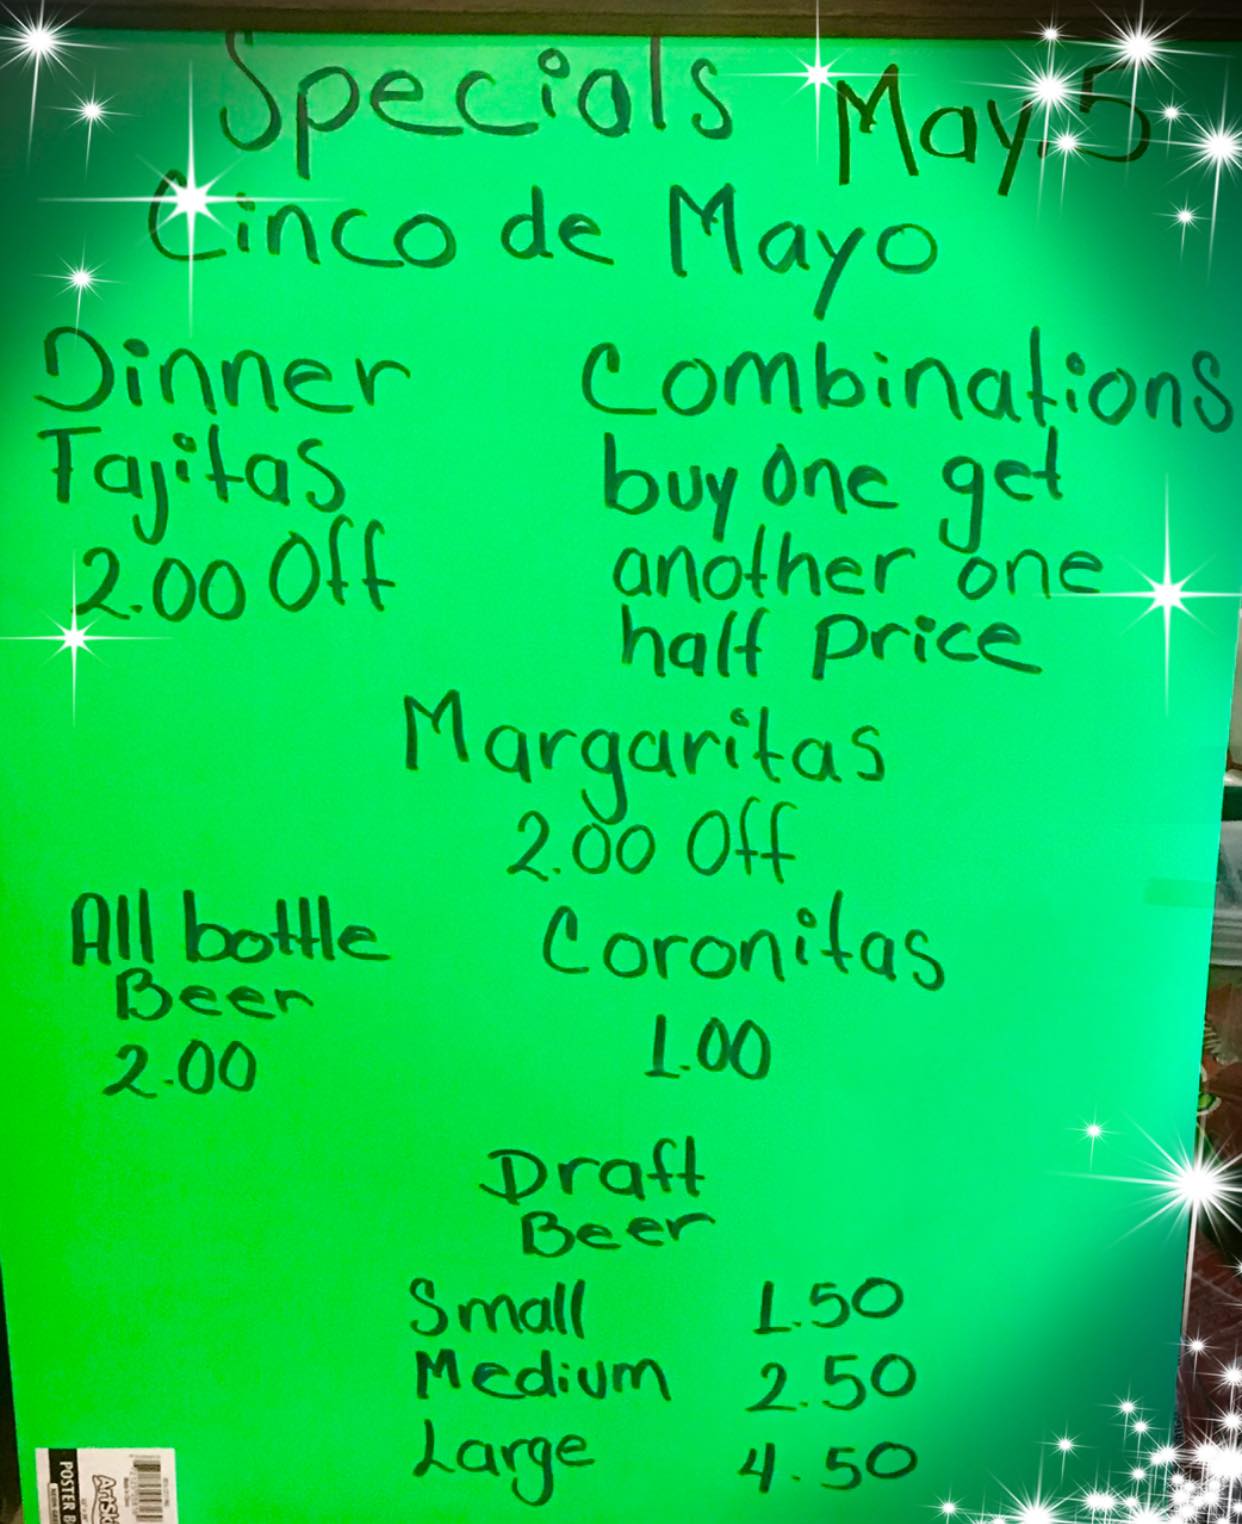 Specials May.5
Cinco de Mayo
Dinner
Fajitas
2.00 Off
Combinations
buy One get
another one
half Price
Margaritas
2.00 Off
All bottle
Beer
2.00
Coronitas
1.00
Draft
Beer
Small 1.50
Medium 2.50
Large 4.50
POSTER B
ArtSk